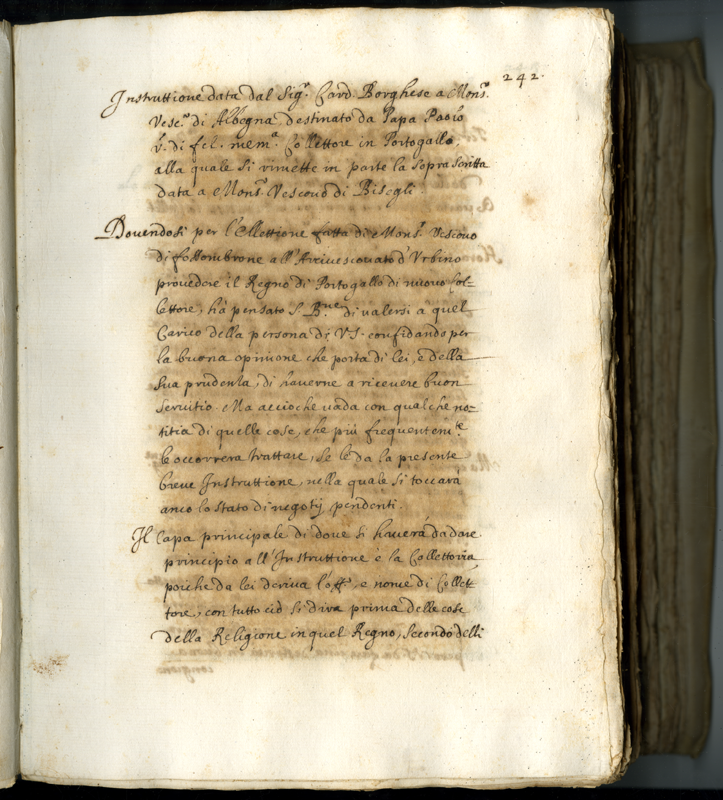 242.
Instruttione data dal Sig.r Card. Borghese a Mons.r
Vesc.o di Albegna destinato da Papa Paolo
V. di fel. mem.a Collettore in Portogallo,
alla quale si rimette in parte la soprascritta
data a Mons.r Vescovo di Bisegli.
Dovendosi per l'Ellettione fatta di Mons.r Vescovo
di fossombrone all'Arcivescovato d'Urbino
provedere il Regno di Portogallo di nuovo Col=
lettore, hà pensato S. B.ne di valersi a quel
Carico della persona di V.S. confidando per
la buona opinione che porta di lei, e della
sua prudenza, di haverne a ricevere buon
servitio. Ma accioche vada con qualche no=
titia di quelle cose, che più frequentem.te
le occorrera trattare, se le da la presente
breve Instruttione, nella quale si toccarà
anco lo stato di negotij pendenti.
Il Capa principale di dove si haverà da dare
principio all'Instruttione è la Collettoria,
poiche da lei deriva l'off.o, e nome di Collet=
tore, con tutto ciò si dirà prima delle cose
della Religione in quel Regno, secondo delli